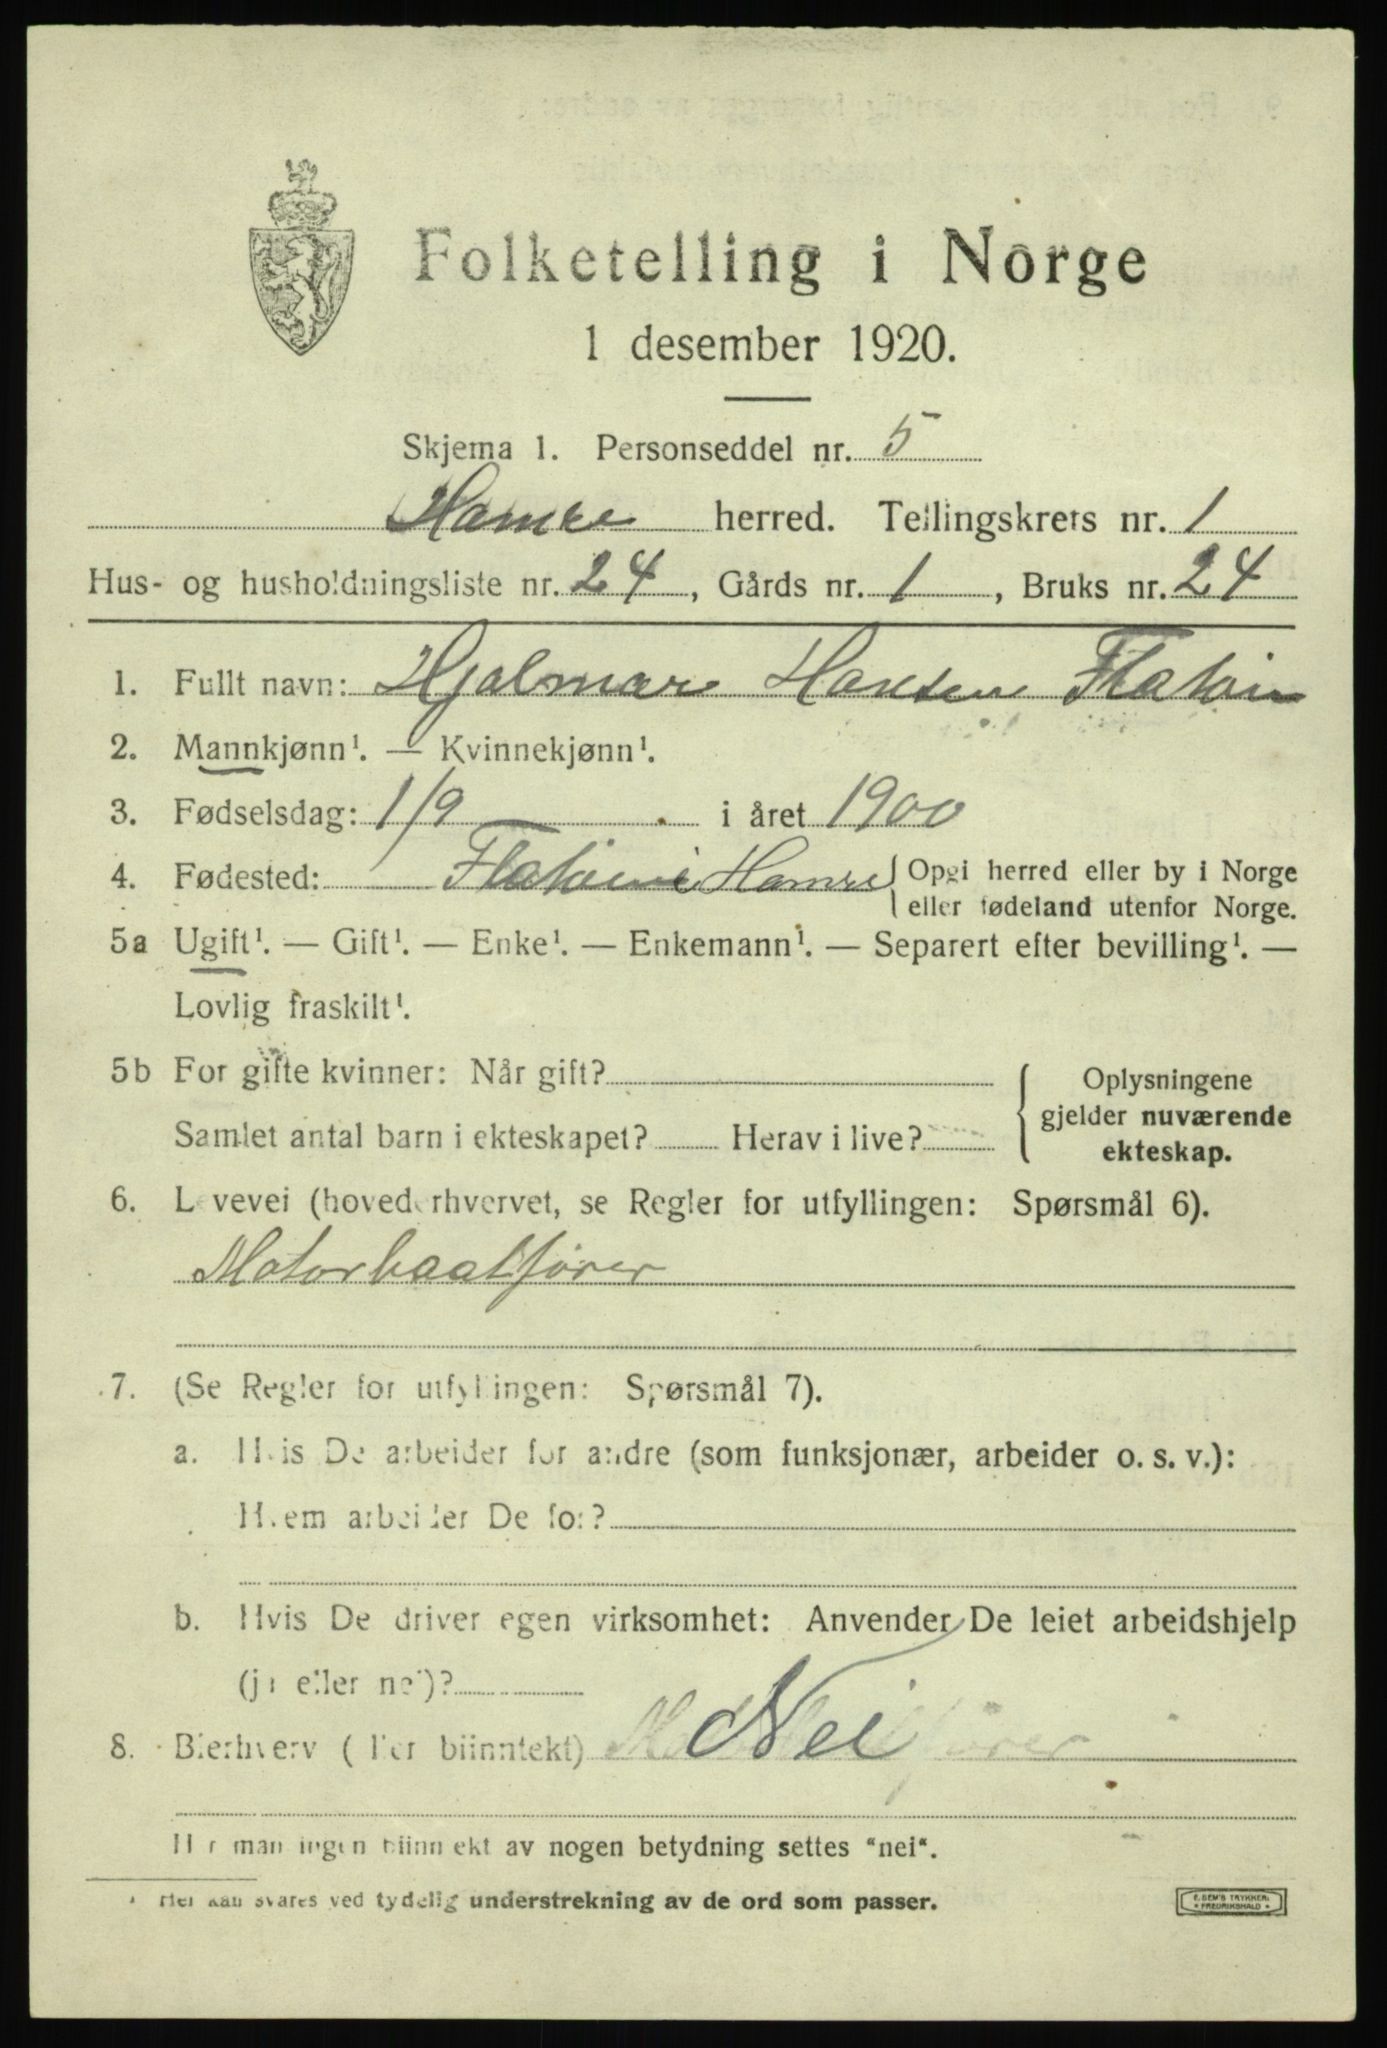 Folketelling i Norge
1 desember 1920.
Skjema 1. Personseddel nr. 5
Hamre herred. Tellingskrets nr. 1
Hus- og husholdningsliste nr. 24, Gårds nr. 1, Bruks nr. 24
1. Fullt navn: Hjalmar Hansen Flatøen
2. Mannkjønn¹. — Kvinnekjønn¹.
3. Fødselsdag: 1/9 i året 1900
4. Fødested: Flatøen i Hamre { Opgi herred eller by i Norge
eller fødeland utenfor Norge.
5a Ugift¹. — Gift¹. — Enke¹. — Enkemann¹. — Separert efter bevilling¹. —
Lovlig fraskilt¹.
5b For gifte kvinner: Når gift?
Samlet antal barn i ekteskapet? Herav i live?
{ Oplysningene
gjelder nuværende
ekteskap.
6. Levevei (hovederhvervet, se Regler for utfyllingen: Spørsmål 6).
Motorbaatfører
7. (Se Regler for utfyllingen: Spørsmål 7).
a. Hvis De arbeider for andre (som funksjonær, arbeider o. s. v.):
Hvem arbeider De for?
b. Hvis De driver egen virksomhet: Anvender De leiet arbeidshjelp
(ja eller nei)?
8. Bierhverv (eller biinntekt) Nei
Har man ingen biinntekt av nogen betydning settes "nei".
¹ Her kan svares ved tydelig understrekning av de ord som passer.
E. SEM'S TRYKKERI
* FREDRIKSHALD *